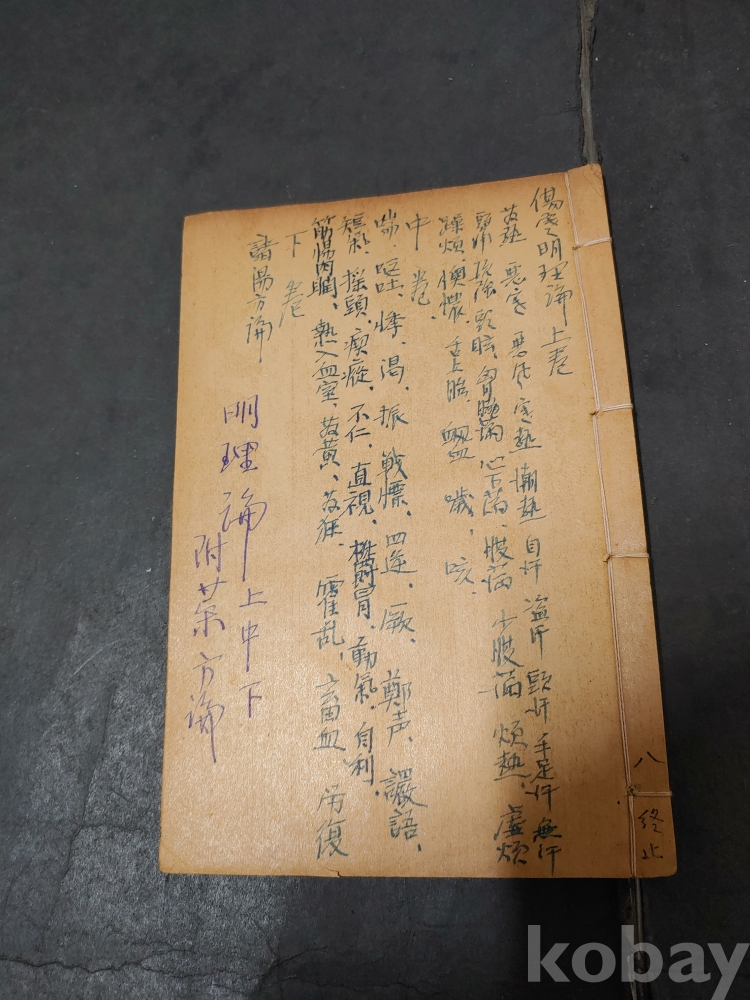 傷寒明理論 上卷
发熱 惡寒 惡風 寒熱 潮熱 自汗 盜汗 頭汗 手足汗 無汗
頭痛 項强 頭眩 胸脇滿 心下滿、腹滿 少腹滿 煩熱、虛煩
躁煩、懊憹、舌上胎、衄血 噦、咳、
中 卷、
喘、嘔吐、悸、渴、振 戰慄、四逆、厥、鄭声、讝語、
短氣、搖頭、瘈瘲、不仁、直視、鬱冒、動氣、自利、
筋惕肉瞤、熱入血室、发黃、发狂、霍乱、畜血 劳復
下 卷
諸 方論
明理論 上中下
附葯方論
八
終止
kobay